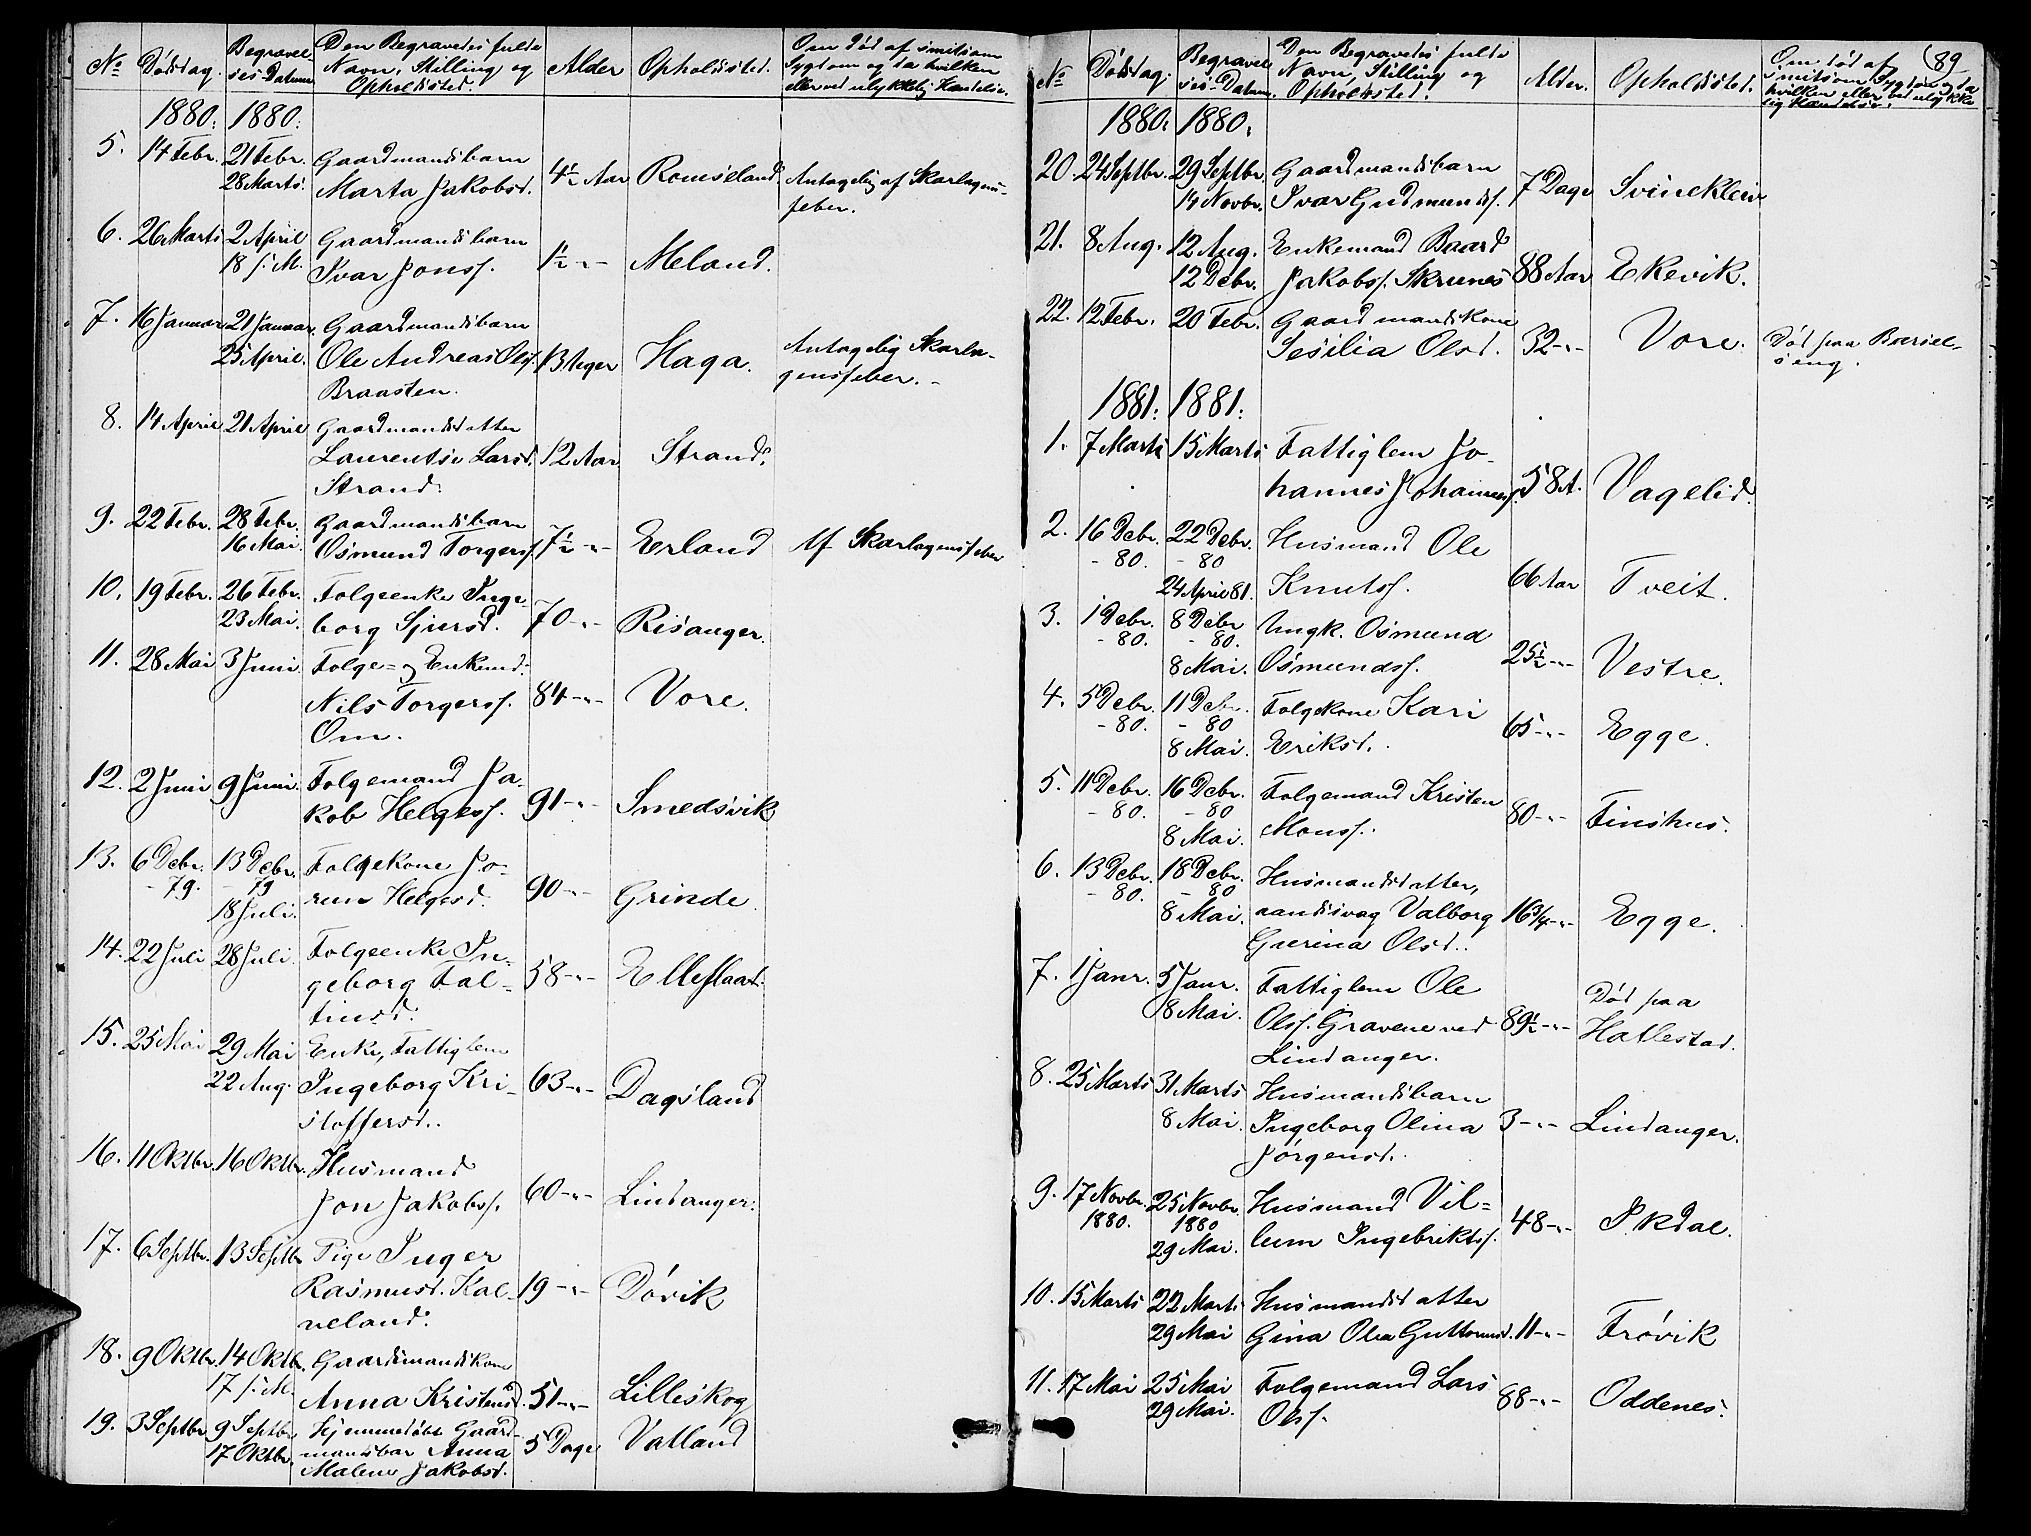 No. Dødsdag. Begravelses-Datum Den Begravedes fulde Navn, Stilling og Opholdssted. Alder Opholdssted. Om død af smitsom Sygdom og da hvilken eller ved ulykkelig Hændelse.
1880. 1880.
5. 14 Febr. 21 Febr. Gaardmandsbarn
28 Marts. Marta Jakobsd. 4½ Aar Romseland. Antagelig af Skarlagens-
feber.
6. 26 Marts 2 April Gaardmandsbarn
18 s. M. Ivar Jonss. 1½ -"- Meland.
7. 16 Januar 21 Januar. Gaardmandsbarn
25 April. Ole Andreas Olss. 13 Uger Haga. Antagelig Skarla-
Braasten. gensfeber. -
8. 14 April 21 April Gaardmandsdatter
Laurentse Larsd. 12 Aar Strand.
Strand.
9. 22 Febr. 28 Febr. Gaardmandsbarn
16 Mai. Osmund Torgerss. 7½ -"- Erland Af Skarlagensfeber
10. 19 Febr. 26 Febr. Folgeenke Inge-
23 Mai. borg Sjursd. 70 -"- Risanger.
11. 28 Mai 3 Juni. Folge- og Enkemd.
Nils Torgerss. 84 -"- Vore.
Om.
12. 2 Juni 9 Juni. Folgemand Ja-
kob Helgess. 91 -"- Smedsvik
13. 6 Debr. 13 Debr. Folgekone Jo-
- 79. - 79 run Helgesd. 90 -"- Grinde
18 Juli.
14. 22 Juli 28 Juli. Folgeenke In-
geborg Fal- 58 -"-
tinsd.
15. 25 Mai 29 Mai Enke, Fattiglem
22 Aug. Ingeborg Kri- 63 -"- Dagsland
stoffersd.
16. 11 Oktbr. 16 Oktbr. Husmand
Jon Jakobss. 60 -"- Lindanger.
17. 6 Septbr. 13 Septbr. Pige Inger
Rasmusd. Kal- 19 -"- Døvik
veland.
18. 9 Oktbr. 14 Oktbr. Gaardmandskone
17 s. M. Anna Kristensd. 51 -"- Lilleskog
19. 3 Septbr. 9 Septbr. Hjemmedøbt Gaard-
17 Oktbr. mandsbar Anna 5 Dage Vatland
Malene Jakobsd.
89
No. Dødsdag. Begravelses-Datum. Den Begravedes fulde Navn, Stilling og Opholdssted. Alder. Opholdssted. Om død af smitsom Sygdom og da hvilken eller ved ulykkelig Hændelse.
1880. 1880.
20. 24 Septbr. 29 Septbr. Gaardmandsbarn
14 Novbr. Ivar Gudmundss. 7 Dage Svinekleiv
21. 8 Aug. 12 Aug. Enkemand Baard
12 Debr. Jakobss. Skrunes 88 Aar Ekevik.
22. 12 Febr. 20 Febr. Gaardmandskone
Sesilia Olsd. 32 -"- Vore. Død paa Barsel-
seng.
1881. 1881.
1. 7 Marts 15 Marts Fattiglem Jo-
hannes Johanness. 58 A. Vagelid.
2. 16 Debr. 22 Debr. Husmand Ole
- 80. - 80
24 April 81. Knutss. 66 Aar Tveit.
3. 1 Debr. 8 Debr Ungk. Osmund
- 80. - 80.
8 Mai. Osmundss. 25½ -"- Vestre.
4. 5 Debr. 11 Debr. Folgekone Kari
- 80. - 80
8 Mai. Eriksd. 65 -"- Egge.
5. 11 Debr. 16 Debr. Folgemand Kristen
- 80. - 80
8 Mai. Monss. 80 -"- Finshus.
6. 13 Debr. 18 Debr. Husmandsdatter,
- 80. - 80
8 Mai. aandssvag Valborg 16¾ -"- Egge.
Gurina Olsd.
7. 1 Janr. 5 Janr. Fattiglem Ole Død paa
8 Mai. Olss. Gravene ved 89½ -"- Hatlestad.
Lindanger.
8. 25 Marts 31 Marts Husmandsbarn
8 Mai. Ingeborg Olina 3 -"- Lindanger.
Jørgensd.
9. 17 Novbr. 25 Novbr. Husmand Vil-
1880. 1880
29 Mai. lum Ingebriktss. 48 -"- Ikdal.
10. 15 Marts 22 Marts Husmandsdatter
29 Mai Gina Olea Guttormsd. 11 -"- Frøvik
11. 17 Mai 25 Mai Folgemand Lars
29 Mai. Olss. 88 -"- Oddenes.